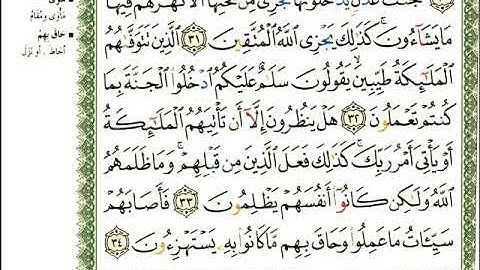 جَنَّٰتُ عَدْنٍ يَدْخُلُونَهَا تَجْرِى مِن تَحْتِهَا ٱلْأَنْهَٰرُ لَهُمْ فِيهَا
مَا يَشَآءُونَ ۚ كَذَٰلِكَ يَجْزِى ٱللَّهُ ٱلْمُتَّقِينَ ٣١ ٱلَّذِينَ تَتَوَفَّىٰهُمُ
ٱلْمَلَٰٓئِكَةُ طَيِّبِينَ ۙ يَقُولُونَ سَلَٰمٌ عَلَيْكُمُ ٱدْخُلُوا۟ ٱلْجَنَّةَ بِمَا
كُنتُمْ تَعْمَلُونَ ٣٢ هَلْ يَنظُرُونَ إِلَّآ أَن تَأْتِيَهُمُ ٱلْمَلَٰٓئِكَةُ
أَوْ يَأْتِىَ أَمْرُ رَبِّكَ ۚ كَذَٰلِكَ فَعَلَ ٱلَّذِينَ مِن قَبْلِهِمْ ۚ وَمَا ظَلَمَهُمُ
ٱللَّهُ وَلَٰكِن كَانُوٓا۟ أَنفُسَهُمْ يَظْلِمُونَ ٣٣ فَأَصَابَهُمْ
سَيِّـَٔاتُ مَا عَمِلُوا۟ وَحَاقَ بِهِم مَّا كَانُوا۟ بِهِۦ يَسْتَهْزِءُونَ ٣٤
مأوى ومقام
حاق بهم
أحاط . أو نزل